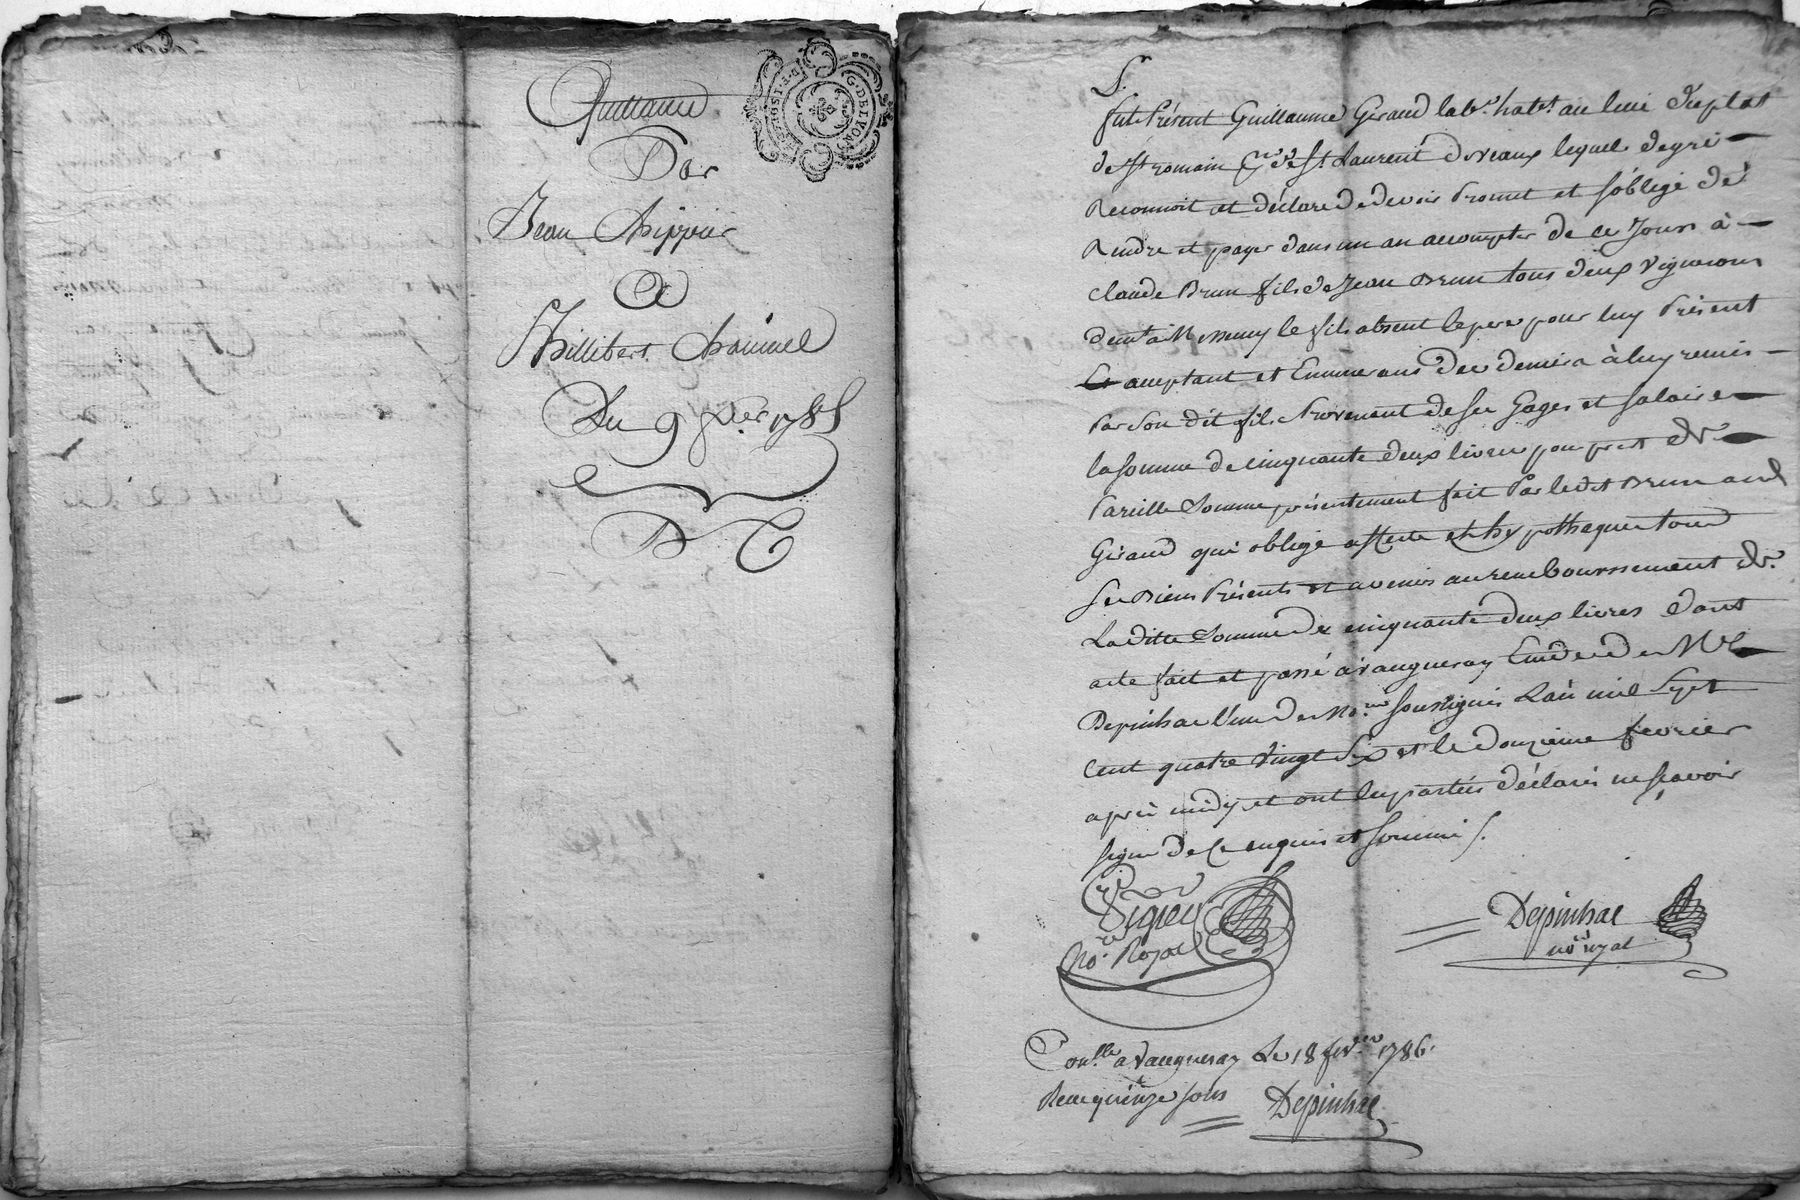 Quittance
Par
Jean Chippier
A
Phillibert Chainuel
Du 9 9bre 1785
G. DE LYON
Sr.
fut Présent Guillaume Giraud labr. habt. au lieu du plat
de st romain psse de st. Laurent de vaux lequel de gré
Reconnoit et déclare de devoir Promet et s'oblige de
Rendre et payer dans un an accompter de ce Jours à
Claude Brun fils de Jean Brun tous deux vignerons
demts à Messimy le fils absent le pere pour luy Présent
acceptant et Enumerans des deniers à luy remis
Par son dit fils Provenant de ses Gages et Salaires
la somme de cinquante deux livres pour prest de
Pareille Somme présentement fait Par ledit Brun aud
Giraud qui oblige affecte et hypotheque tous
ses Biens Présents et avenirs au remboursement de
La ditte Somme de cinquante deux livres dont
acte fait et passé à vaugneray Etude de Me
Depinhac l'un des Nores soussignés L'an mil Sept
Cent quatre Vingt Six et le douzieme fevrier
après midy et ont les parties déclaré ne sçavoir
signer de Ce enquis et sommé S.
No.re Royal
Depinhac
nore royal
Conllé a Vaugneray Le 18 fevrier 1786.
Recu quinze sols Depinhac